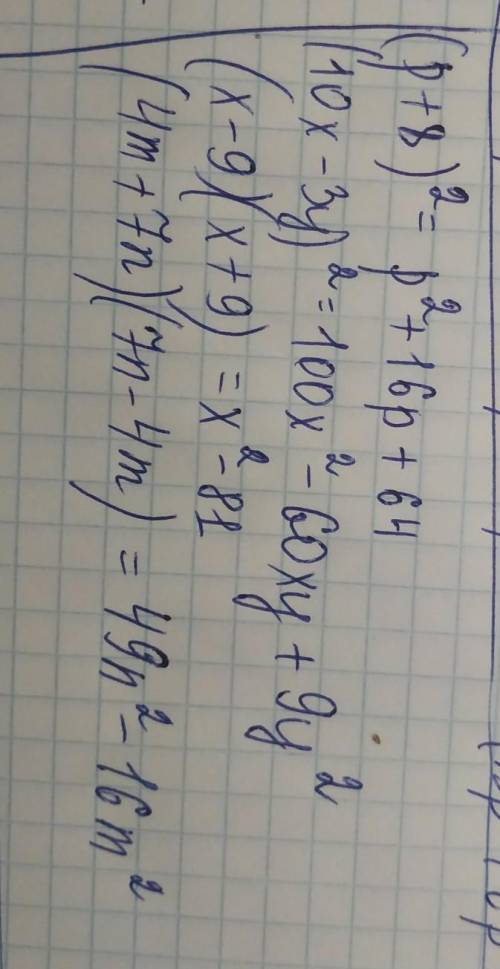 (p+8)² = p² + 16p + 64
(10x - 3y)² = 100x² - 60xy + 9y²
(x - 9)(x + 9) = x² - 81
(4m + 7n)(7n - 4m) = 49n² - 16m²